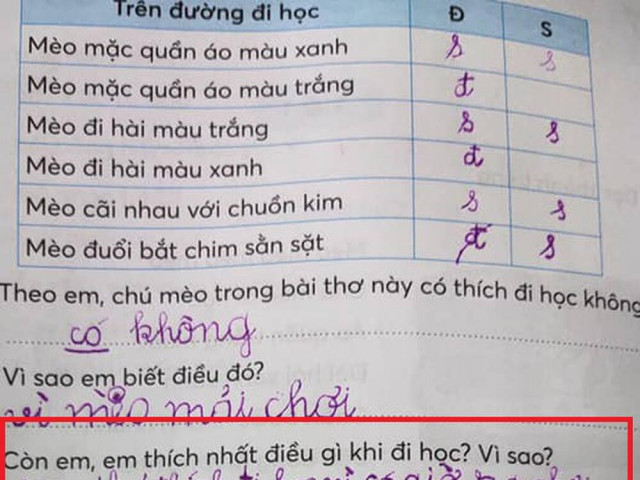 Trên đường đi học Đ S
Mèo mặc quần áo màu xanh s s
Mèo mặc quần áo màu trắng đ
Mèo đi hài màu trắng s s
Mèo đi hài màu xanh đ
Mèo cãi nhau với chuồn kim s s
Mèo đuổi bắt chim sằn sặt đ s
Theo em, chú mèo trong bài thơ này có thích đi học không
có không
Vì sao em biết điều đó?
vì mèo mải chơi
Còn em, em thích nhất điều gì khi đi học? Vì sao?